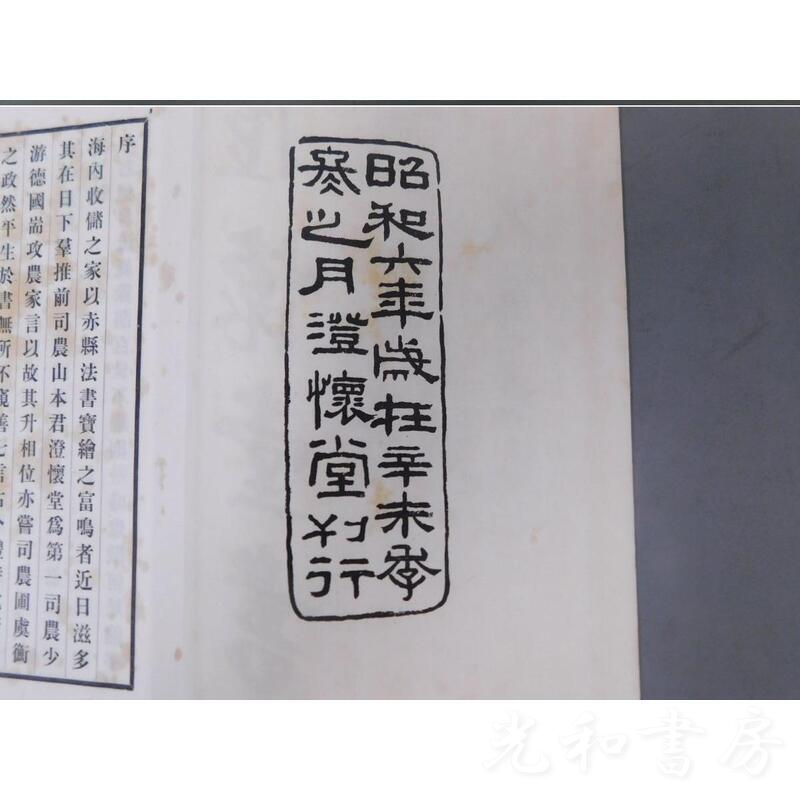 昭和六年歲在辛未季
冬之月澄懷堂刊行
序
海內收儲之家以赤縣法書寶繪之富鳴者近日滋多
其在日下羣推前司農山本君澄懷堂爲第一司農少
游德國耑攻農家言以故其升相位亦嘗司農圃虞衡
之政然平生於書無所不窺善七言古
光和書房